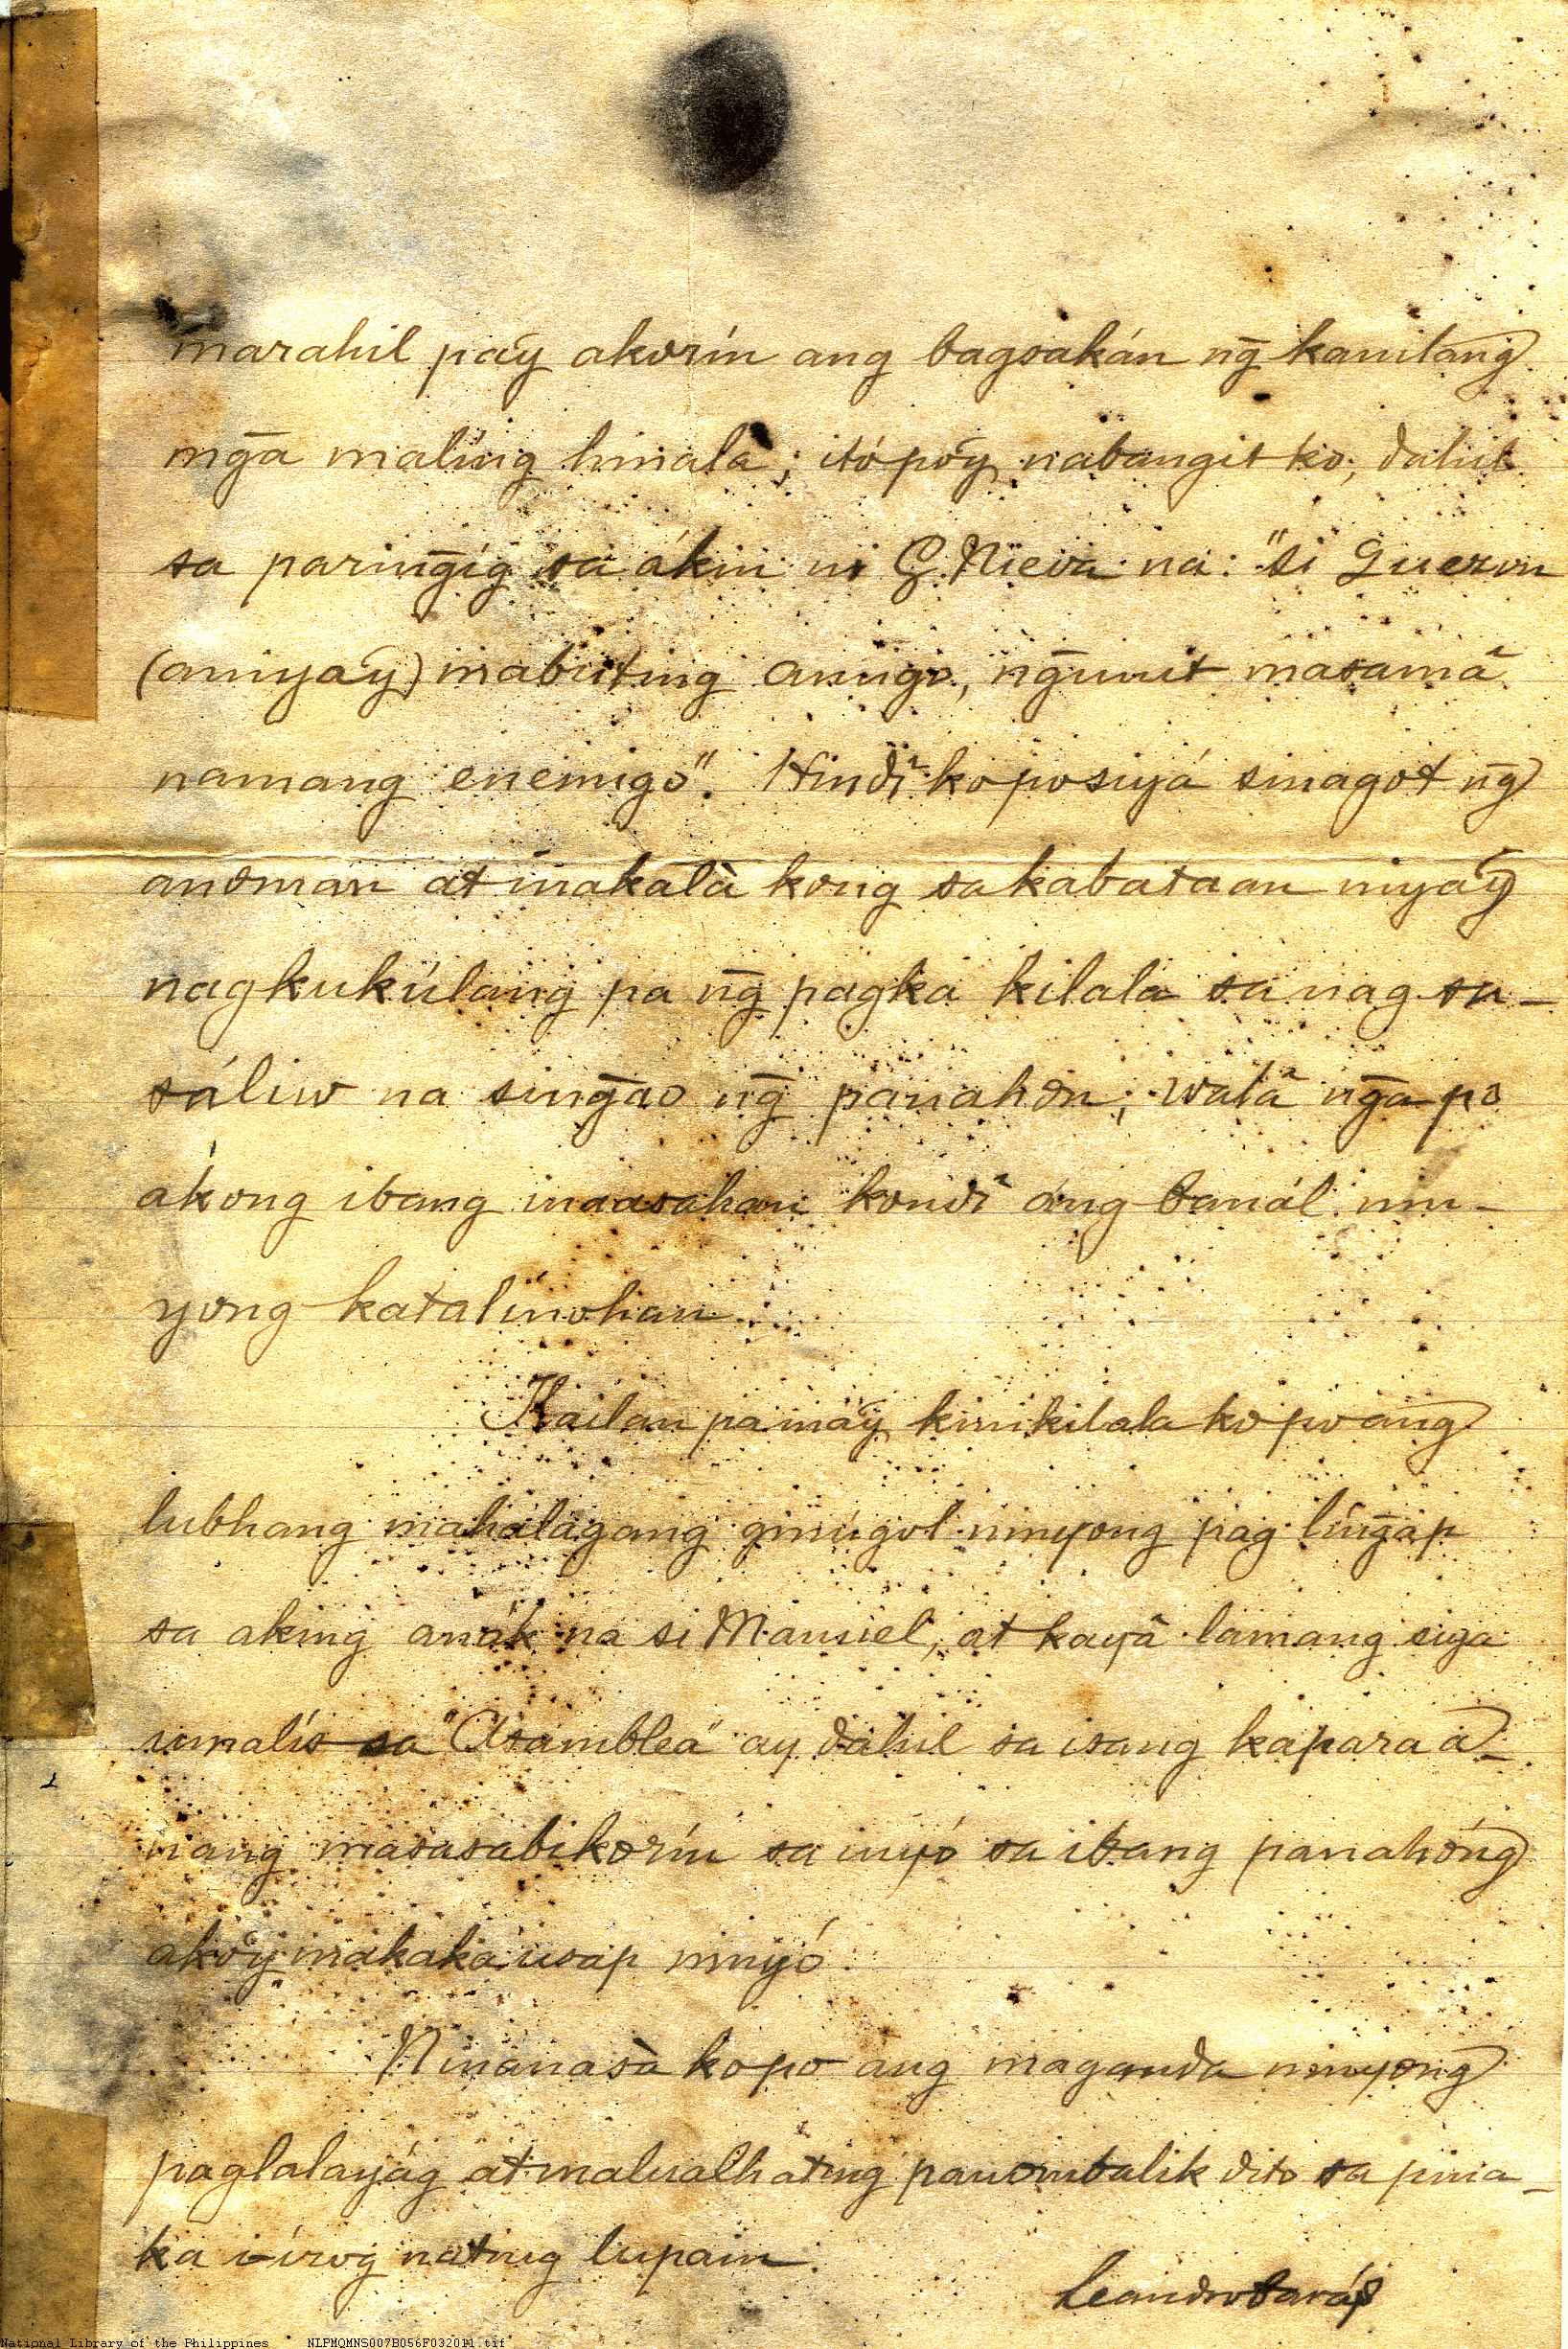 marahil pa'y akorin ang bagsakán n̄g kanilang
mn̄ga malíng hinalà; itópo'y nabangit ko, dahil
sa parin̄gíg sa ákin ni G. Nieva na: "si Quezon
(aniya'y) mabuting amigo, n̄gunit masamâ
namang enemigo". Hindî koposiyá sinagot n̄g
anoman at inakalà kong sa kabataan niya'y
nagkukúlang pa n̄g pagka kilala sa nag sa-
sáliw na sin̄gao n̄g panahon; walâ n̄ga po
ákong ibang inaasahan kondî ang banál nin-
yong katalinohan.
Kailan pa ma'y kinikilala ko po ang
lubhang mahalagang ginúgol ninyong pag lin̄gap
sa aking anák na si Manuel, at kayâ lamang siya
umalis sa "Asamblea" ay dahil sa isang kaparaa-
nang masasabikorin sa inyó sa ibang panahóng
ako'y makaka usap ninyó.
Ninanasà kopo ang maganda ninyong
paglalayág at malualhating panombalik dito sa pina-
ka i-írog nating lupain.
Leandro
National Library of the Philippines NLPMQMNS007B056F032011.tif